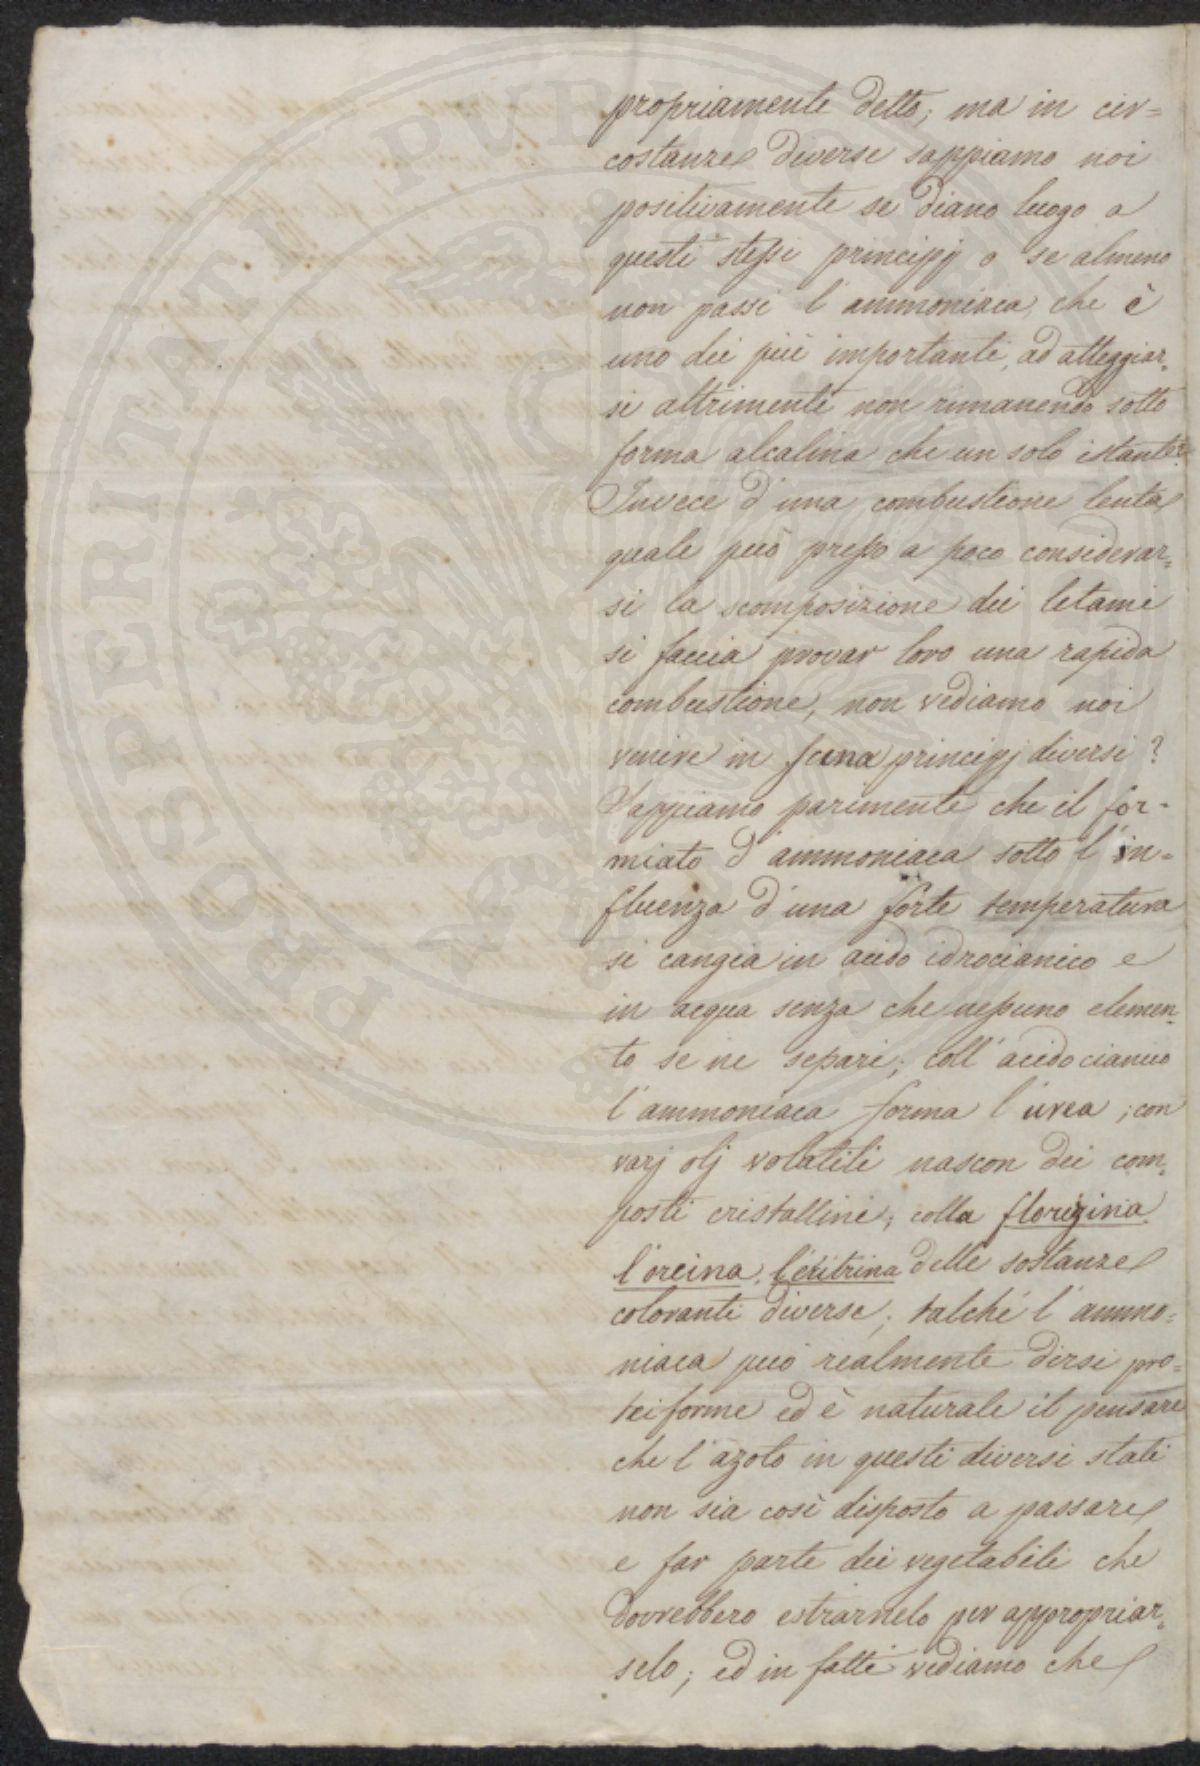 propriamente detto; ma in cir=
costanze diverse sappiamo noi
positivamente se diano luogo a
questi stessi principj o se almeno
non passi l'ammoniaca, che è
uno dei più importanti, ad atteggiar=
si altrimenti non rimanendo sotto
forma alcalina che un solo istante?
Invece d'una combustione lenta
quale può presso a poco considerar=
si la scomposizione dei letami
si faccia provar loro una rapida
combustione, non vediamo noi
venire in scena principj diversi?
Sappiamo parimente che il for=
miato d'ammoniaca sotto l'in=
fluenza d'una forte temperatura
si cangia in acido idrocianico e
in acqua senza che nessuno elemen=
to se ne separi; coll'acido cianico
l'ammoniaca forma l'urea; con
varj olj volatili nascon dei com=
posti cristallini; colla florizina
l'orcina, l'eritrina delle sostanze
coloranti diverse; talché l'ammo=
niaca può realmente dirsi pro=
teiforme ed è naturale il pensare
che l'azoto in questi diversi stati
non sia così disposto a passare
e far parte dei vegetabili che
dovrebbero estrarnelo per appropriar=
selo; ed in fatti vediamo che
PROSPERITATI PUBLICAE